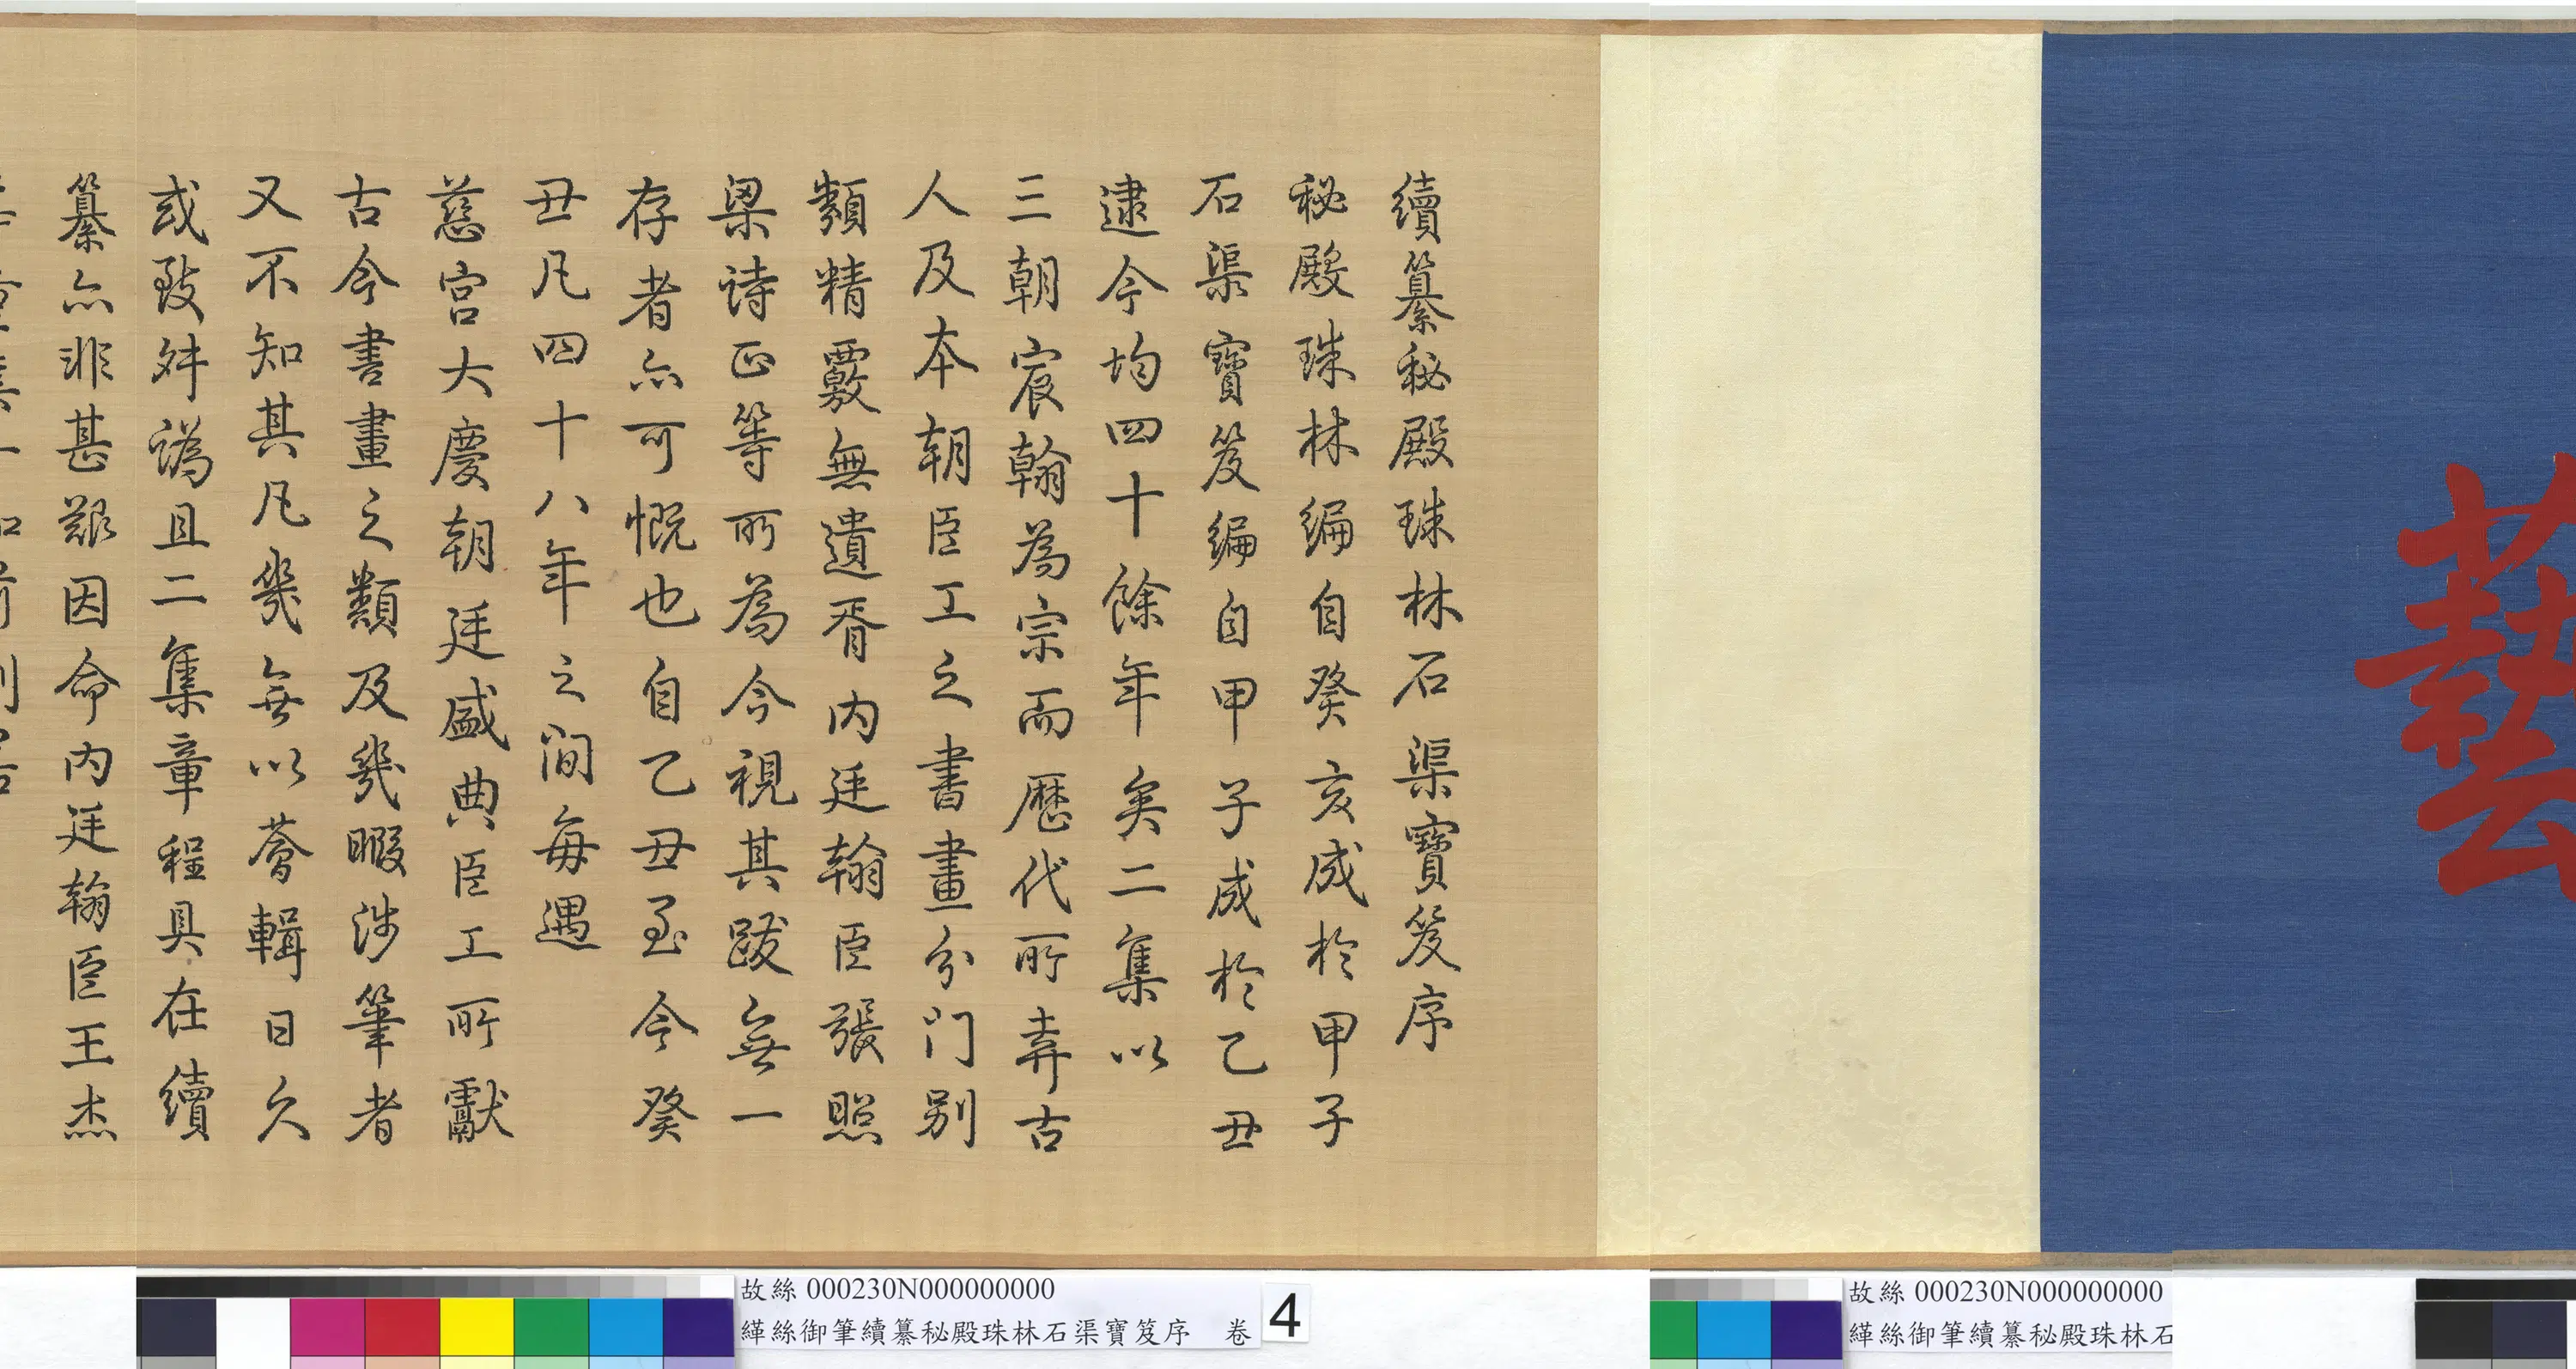 藝
續纂秘殿珠林石渠寶笈序
秘殿珠林編自癸亥成於甲子
石渠寶笈編自甲子成於乙丑
逮今均四十餘年矣二集以
三朝宸翰為宗而歷代所弆古
人及本朝臣工之書畫分门别
類精覈無遺胥内廷翰臣張照
梁诗正等所為今視其跋無一
存者亦可慨也自乙丑至今癸
丑凡四十八年之间每遇
慈宫大慶朝廷盛典臣工所獻
古今書畫之類及幾暇涉筆者
又不知其凡幾無以薈輯日久
或致舛譌且二集章程具在續
纂亦非甚艱因命内廷翰臣王杰
故絲 000230N000000000
緙絲御筆續纂秘殿珠林石渠寶笈序 卷 4
故絲 000230N000000000
緙絲御筆續纂秘殿珠林石